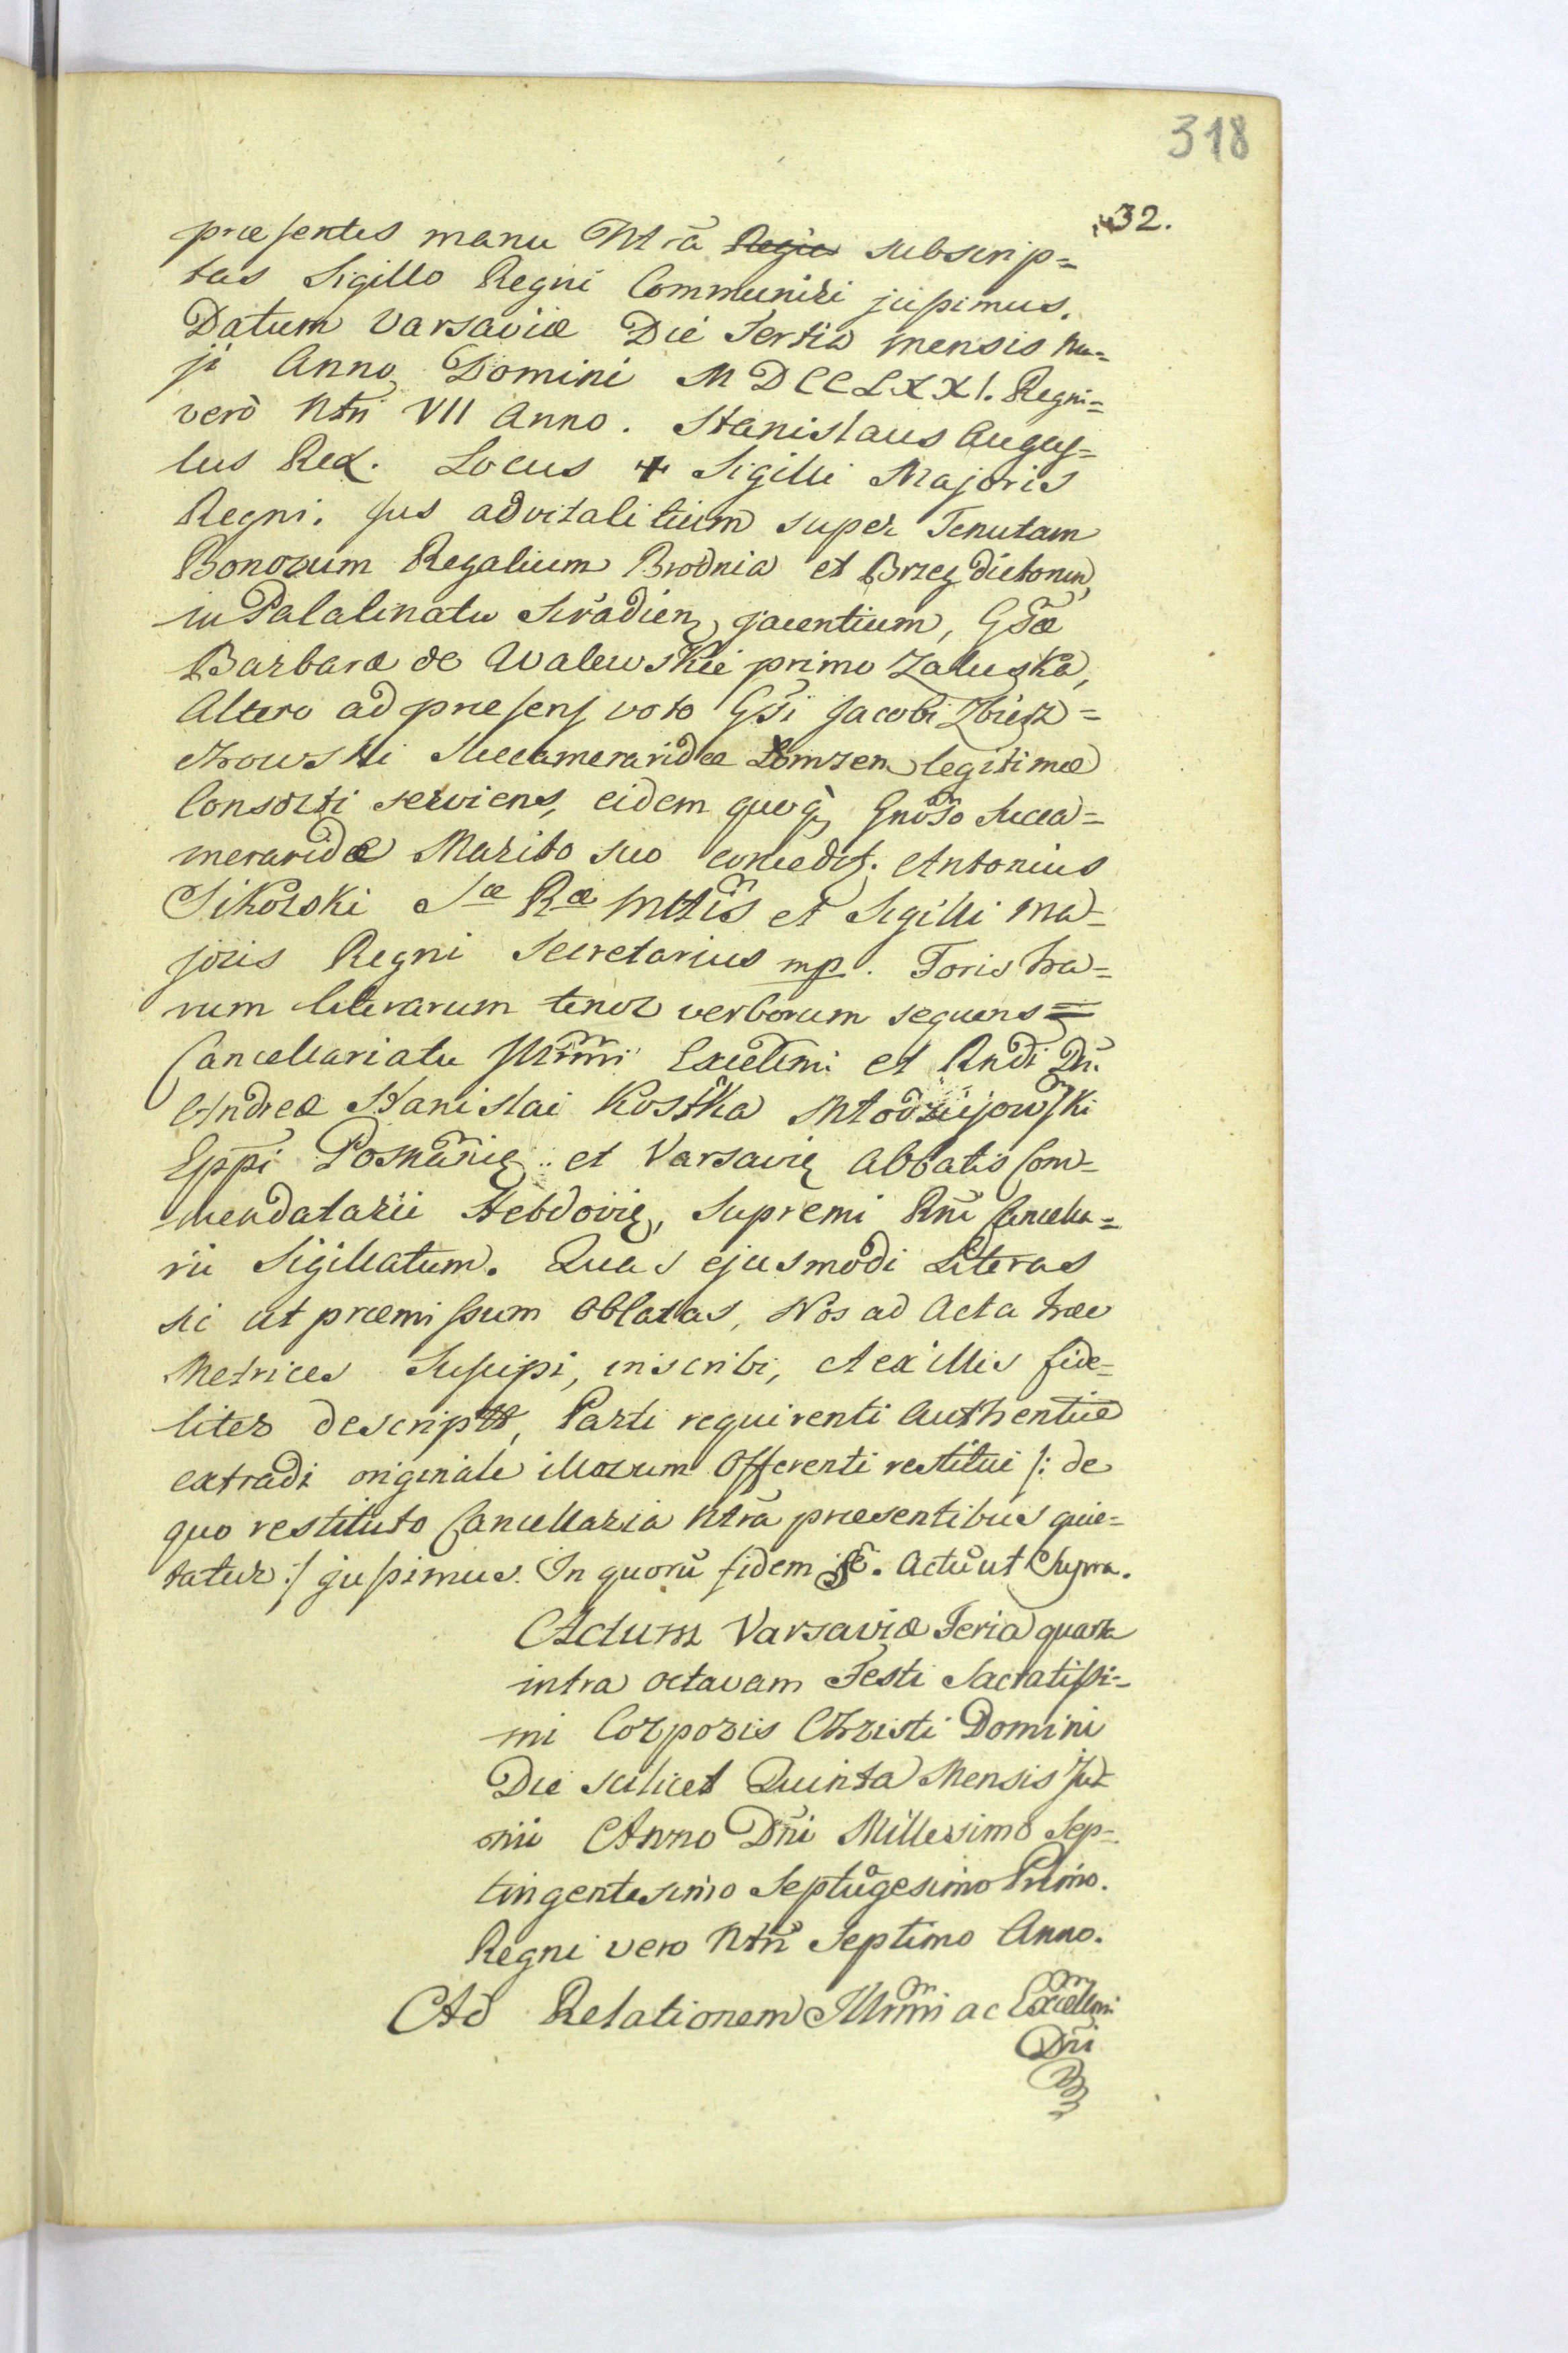 318
32.
præsentes manu Ntrã Regia subscrip=
tas Sigillo Regni Communiri jussimus.
Datum Varsaviæ Die Tertia mensis Ma=
ji Anno Domini MDCCLXXI. Regni=
verò Ntri VII Anno. Stanislaus Augus=
tus Rex. Locus + Sigilli Majoris
Regni. Jus advitalitium super Tenutam
Bonorum Regalium Brodnia et Brzeg dictorum
in Palatinatu Siradien jacentium, Gsæ
Barbaræ de Walewskie primo Załuska,
Altero ad præsens voto Gsi Jacobi Zbiesz=
chowski Succameraridæ Lomzen legitimæ
Consorti serviens, eidem quoq Gnoso Succa=
meraridæ Marito suo concedit. Antonius
Sikorski Sæ Ræ Mttis et Sigilli Ma=
joris Regni Secretarius mp. Toris tra=
rum literarum tenor verborum sequens =
Cancellariatu Illrmi Excellmi et Rndi Dñi
Andreæ Stanislai Kostka Młodziejowski
Eppi Posnanię et Varsavię Abbatis Com=
mendatarii Hebdovię, Supremi Rni Cancella=
rii Sigillatum. Quas ejusmodi Literas
sic ut præmissum oblatas, Nos ad Acta hæc
Metrices Suscipi, inscribi, et ex illis fide=
liter descriptt, Parti requirenti authentice
extradi originale illorum Offerenti restitui /: de
quo restituto Cancellaria Ntra præsentibus quie=
tatur :/ jussimus. In quorũ fidem &c. Actũ ut Supra.
Actum Varsaviæ Feria quarta
intra octavam Festi Sacratissi=
mi Corporis Christi Domini
Die scilicet Quinta Mensis Ju=
nii Anno Dñi Millesimo Sep=
tingentesimo Septuagesimo Primo.
Regni vero Ntri Septimo Anno.
Ad Relationem Illrmi ac Excellmi
Dñi